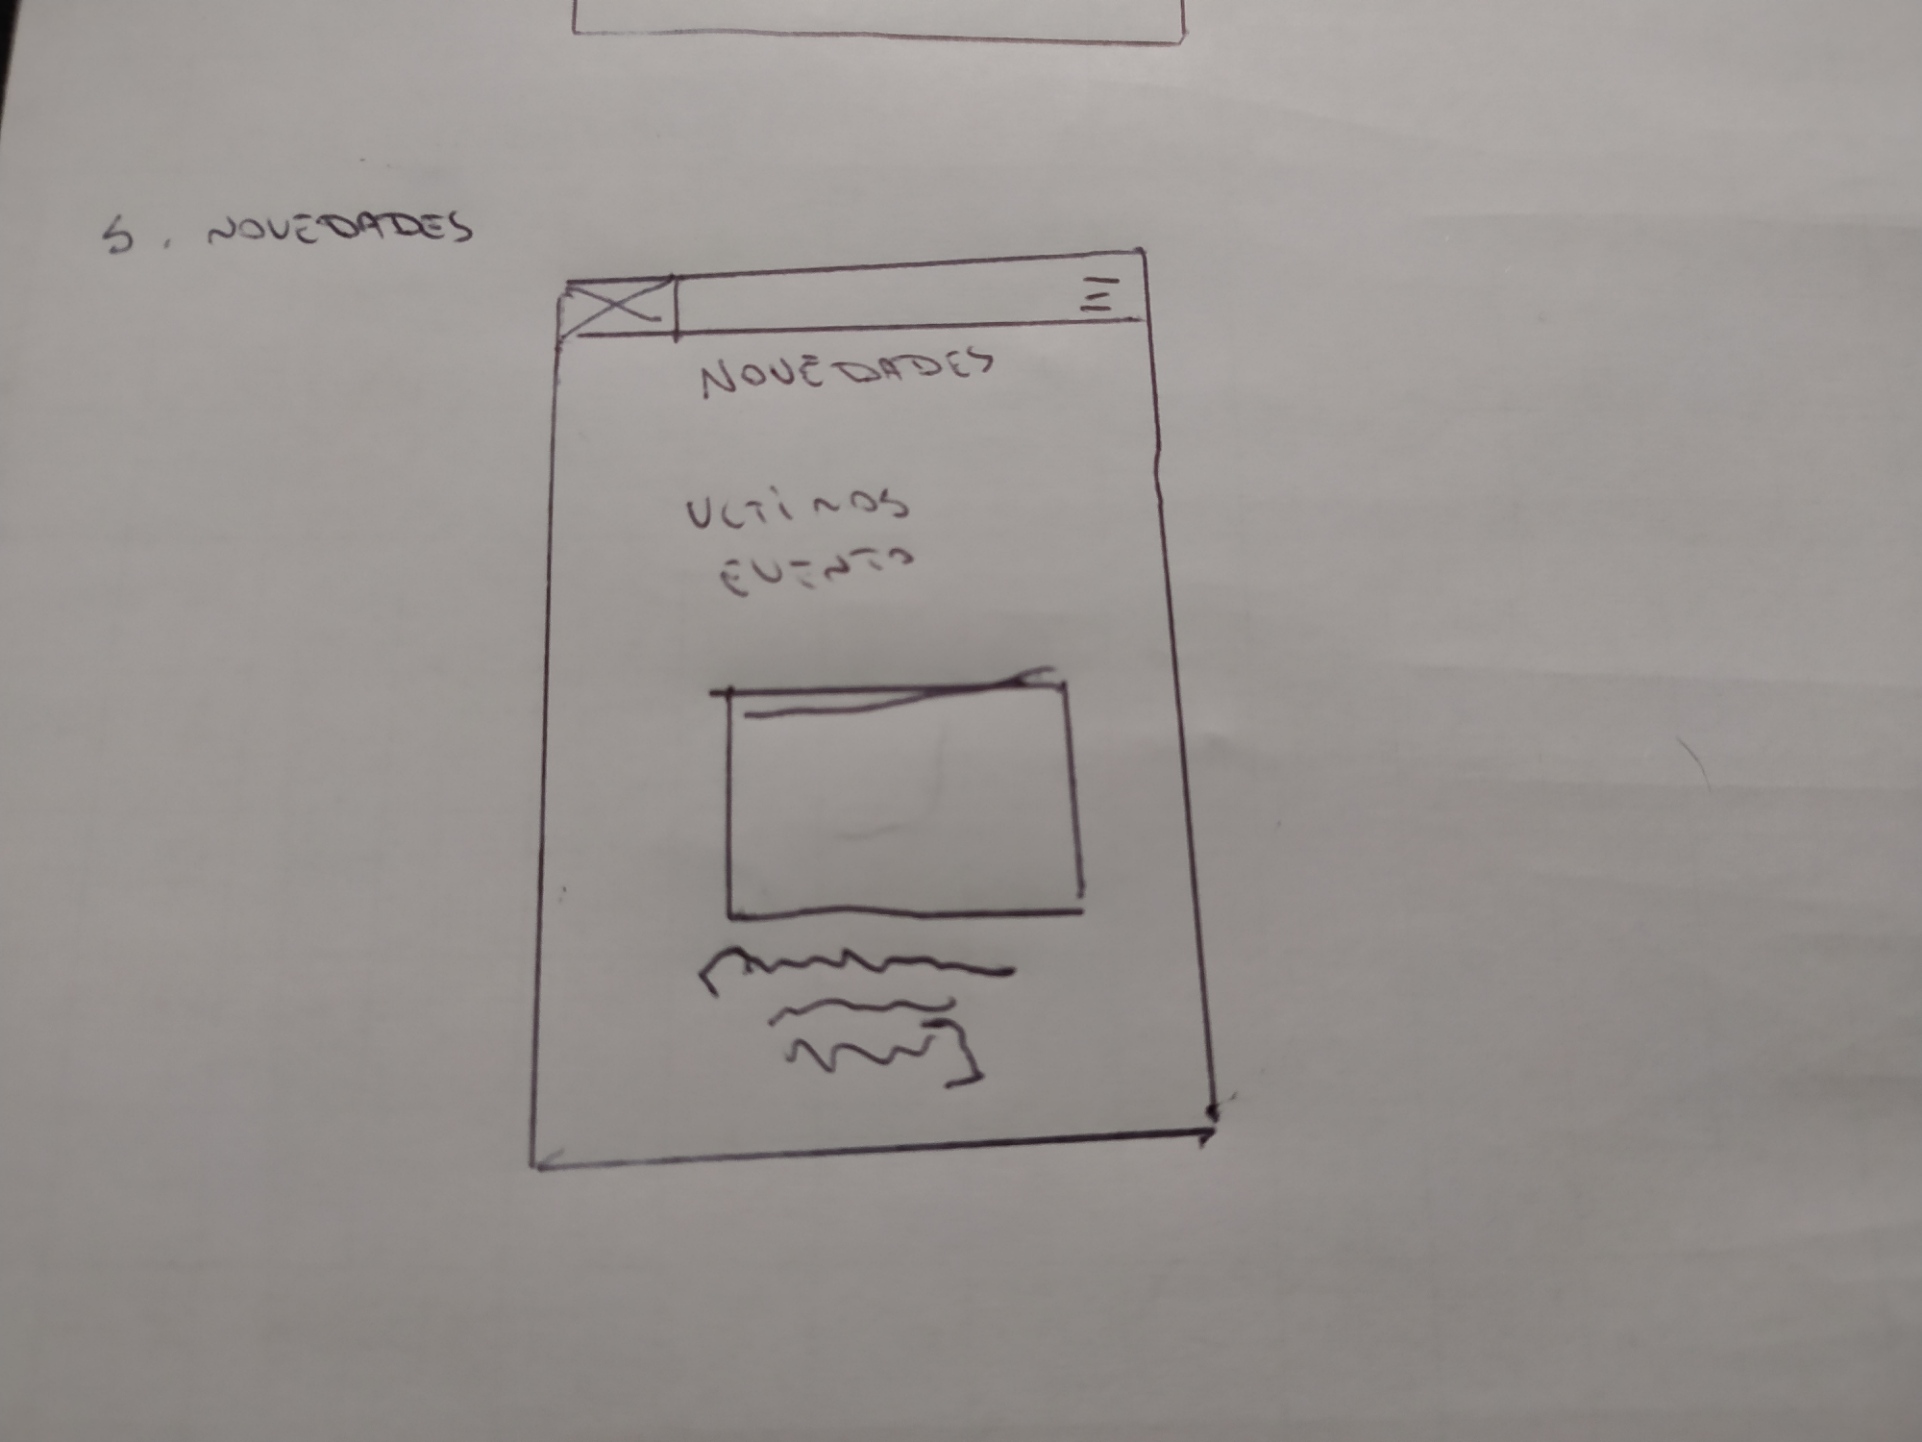 5. NOVEDADES
NOVEDADES
ULTIMOS
EVENTO